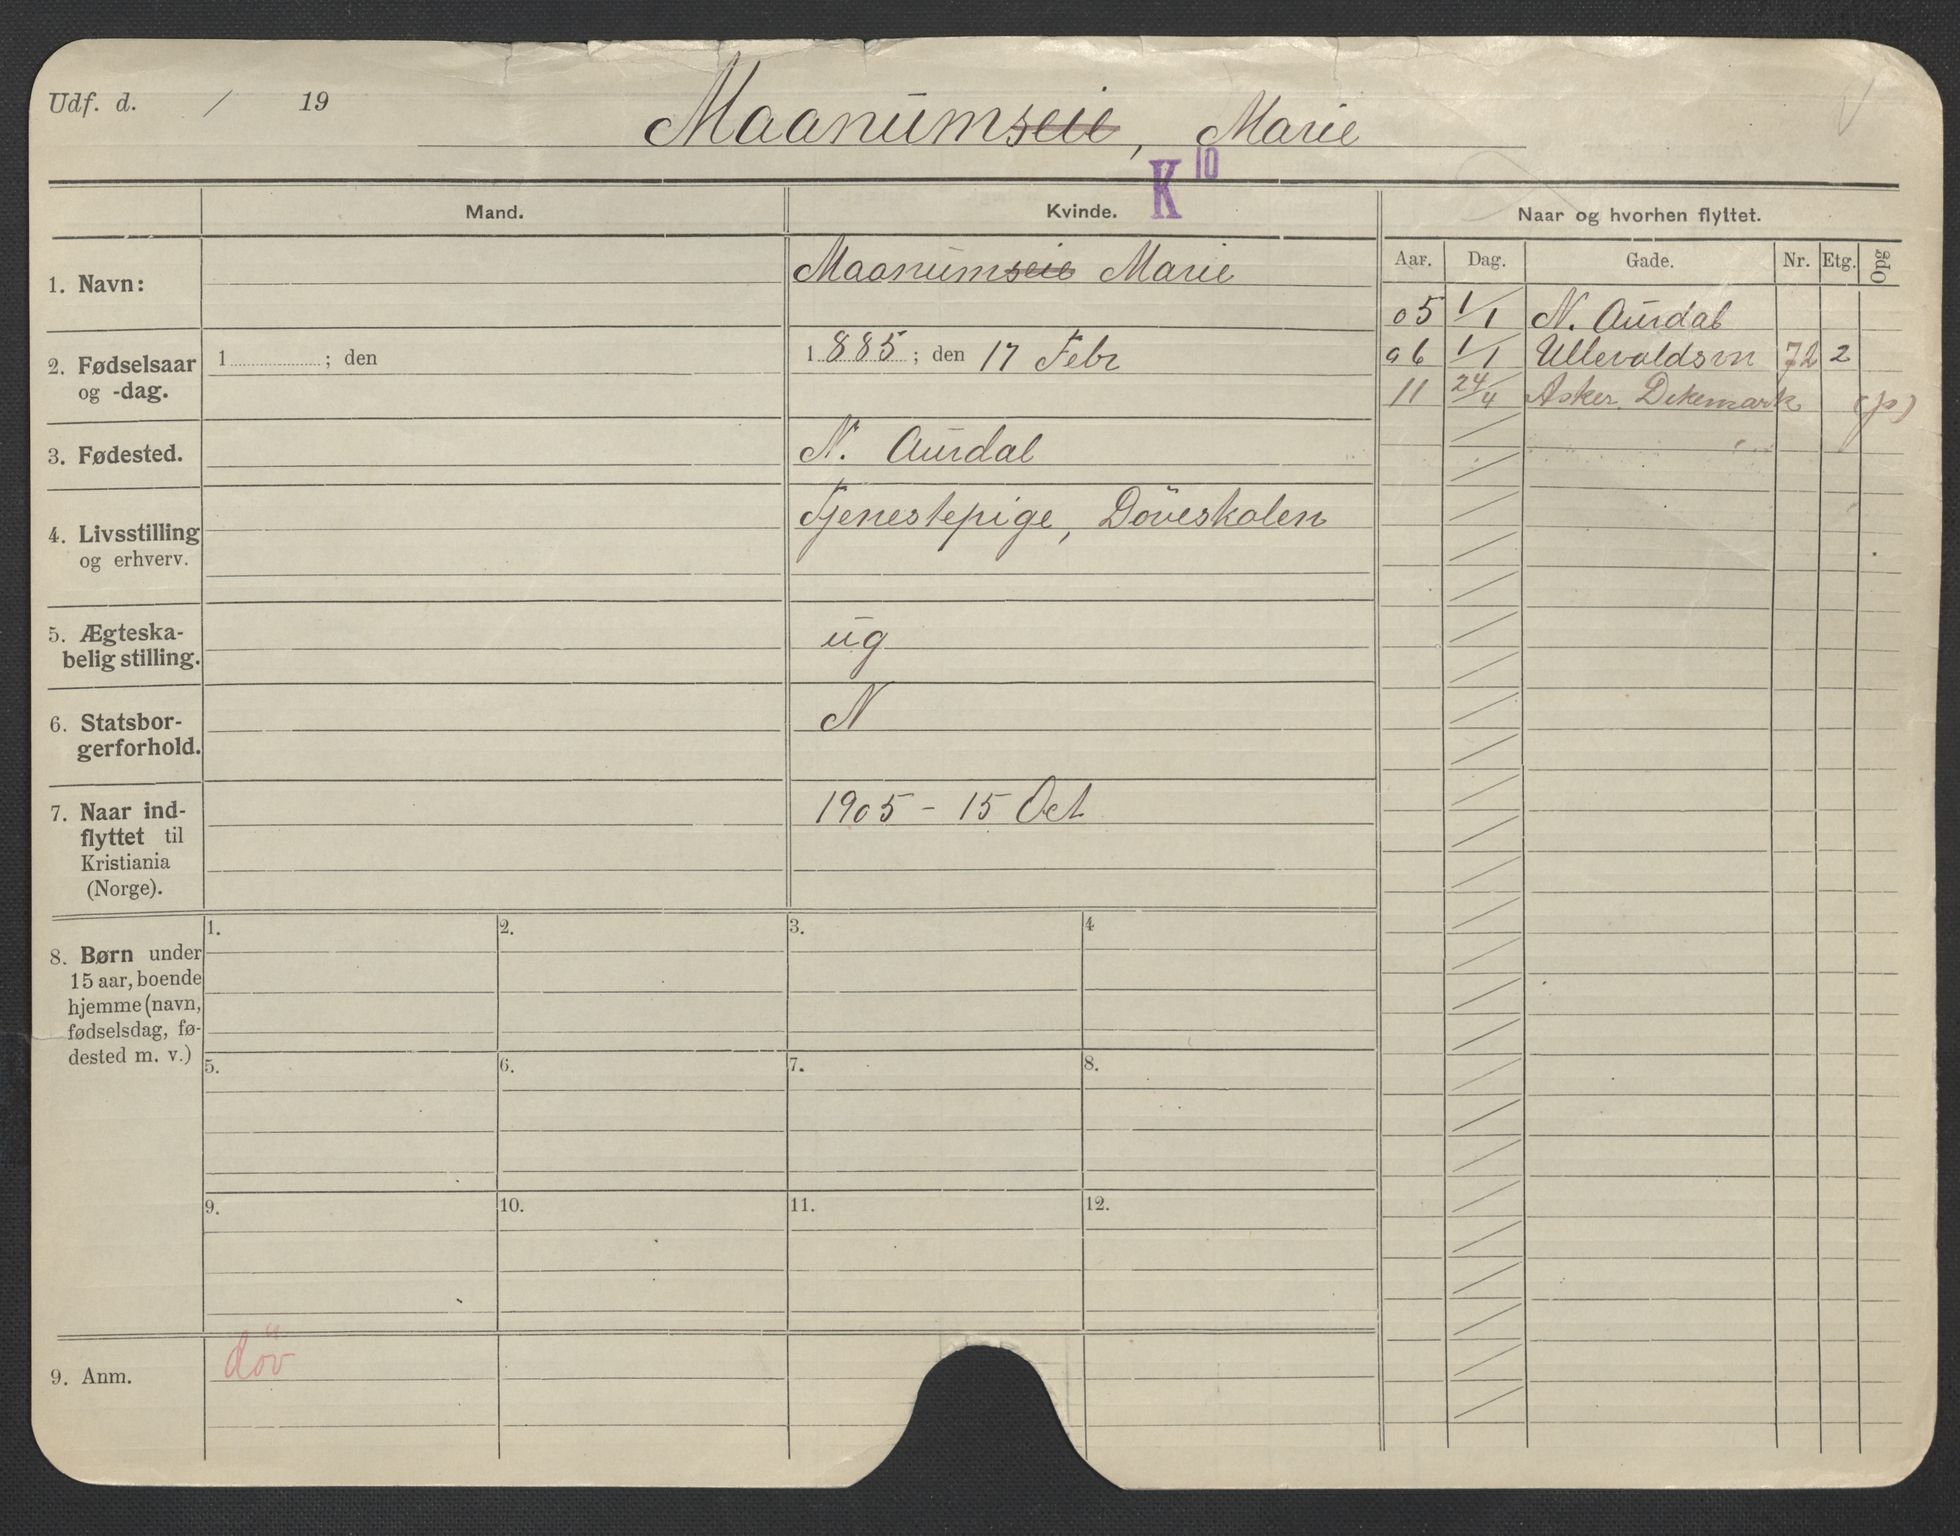 Udf. d. / 19
Maanumseie, Marie
K 10
Mand.
Kvinde.
Naar og hvorhen flyttet.
Aar. Dag. Gade. Nr. Etg. Opg
1. Navn:
Maanumseie Marie
05 1/1 N. Aurdal
2. Fødselsaar
og -dag.
1 ; den
1 885 ; den 17 Febr
06 1/1 Ullevoldsvn 72 2
11 24/4 Asker. Dikemark (ps)
3. Fødested.
N. Aurdal
4. Livsstilling
og erhverv.
Tjenestepige, Döveskolen
5. Ægteska-
belig stilling.
ug
6. Statsbor-
gerforhold.
N
7. Naar ind-
flyttet til
Kristiania
(Norge).
1905 - 15 Oct
8. Børn under
15 aar, boende
hjemme (navn,
fødselsdag, fø-
dested m. v.)
1. 2. 3. 4
5. 6. 7. 8.
9. 10. 11. 12.
9. Anm.
döv